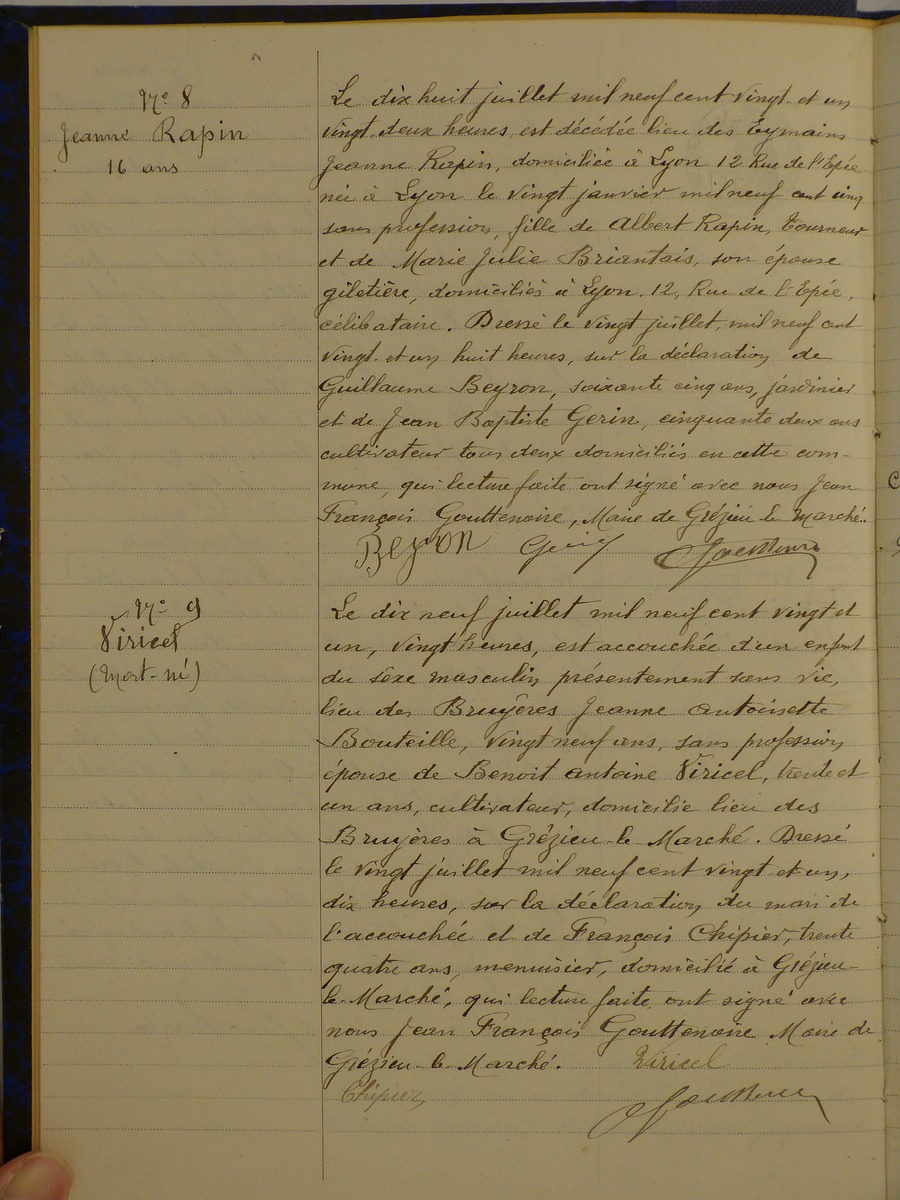 N° 8
Jeanne Rapin
16 ans
Le dix huit juillet mil neuf cent vingt et un
vingt-deux heures, est décédée lieu des Eymains
Jeanne Rapin, domiciliée à Lyon 12 Rue de l'Epée
née à Lyon le vingt janvier mil neuf cent cinq
sans profession, fille de Albert Rapin, Tourneur
et de Marie Julie Briantais, son épouse
giletière, domiciliés à Lyon. 12, Rue de l'Epée,
célibataire. Dressé le vingt juillet, mil neuf cent
vingt-et un huit heures, sur la déclaration de
Guillaume Beyron, soixante cinq ans, jardinier
et de Jean Baptiste Gerin, cinquante deux ans
cultivateur tous deux domiciliés en cette com-
mune, qui lecture faite ont signé avec nous Jean
François Gouttenoire, Maire de Grézieu le Marché.
Beyron Gerin
N° 9
Viricel
(Mort-né)
Le dix neuf juillet mil neuf cent vingt et
un, vingt heures, est accouchée d'un enfant
du sexe masculin présentement sans vie,
lieu des Bruyères Jeanne Antoinette
Bouteille, vingt neuf ans, sans profession
épouse de Benoit Antoine Viricel, trente et
un ans, cultivateur, domicilié lieu des
Bruyères à Grézieu-le-Marché. Dressé
le vingt juillet mil neuf cent vingt et un,
dix heures, sur la déclaration du mari de
l'accouchée et de François Chipier, trente
quatre ans, menuisier, domicilié à Grézieu-
le-Marché, qui lecture faite ont signé avec
nous Jean François Gouttenoire Maire de
Grézieu-le-Marché. Viricel
Chipier